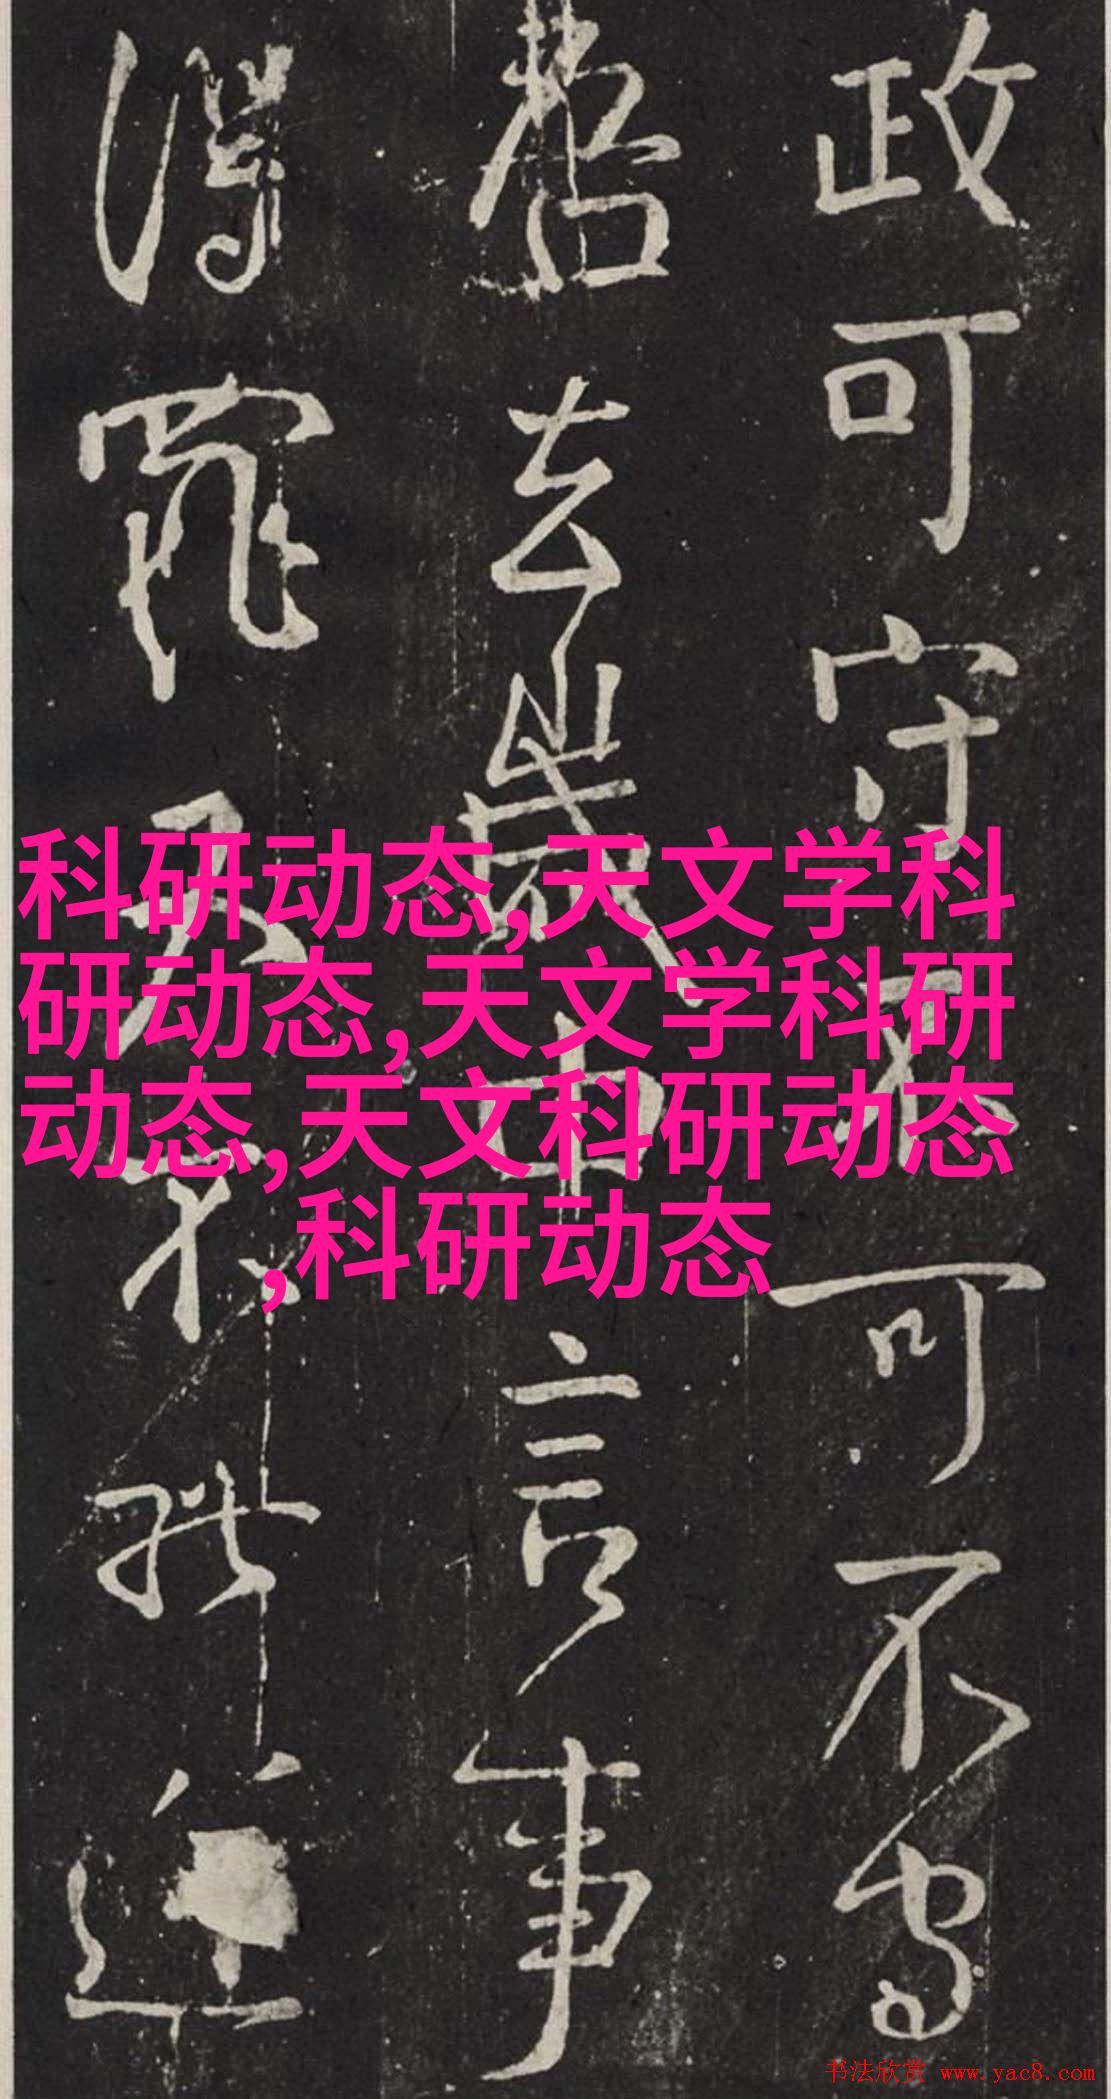 政可守不可不守
吾去歲中言事
得罪又不能逆
科研动态,天文学科
研动态,天文学科研
动态,天文科研动态
,科研动态
书法欣赏 www.yac8.com